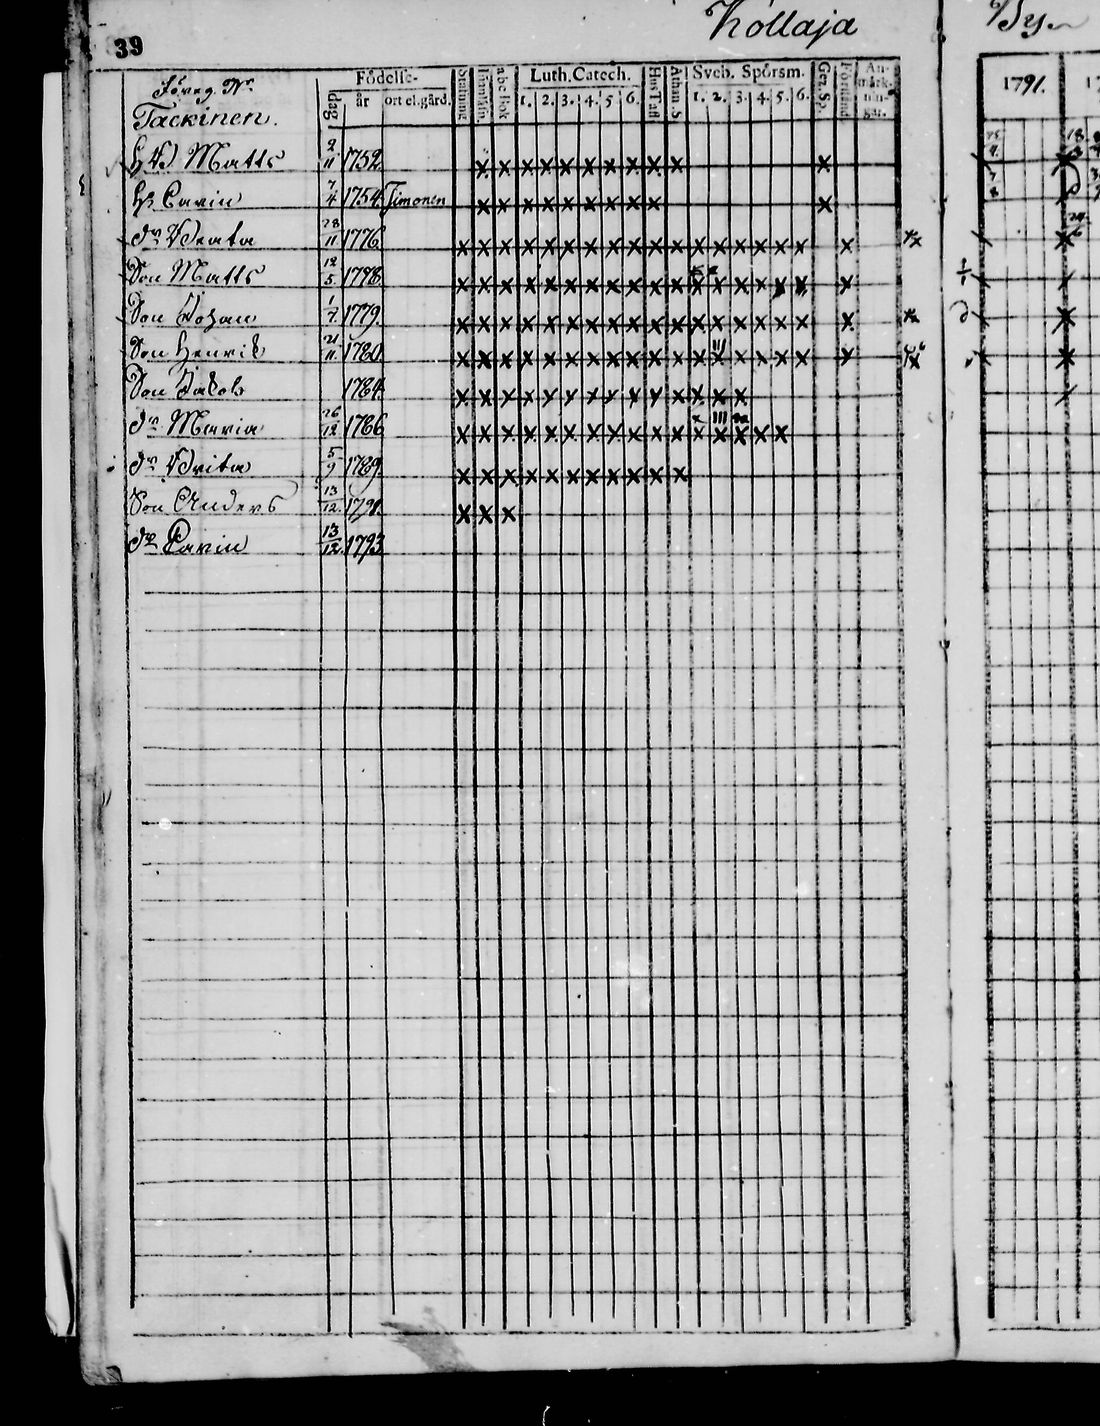 Kollaja
By.
39
Föreg. No.
Tackinen.
Födelse-
dag
år
ort el. gård.
Stafning
Innanläs.
abc Bok
Luth. Catech.
1. 2. 3. 4. 5 6.
Hus Tafl
Athan. S
Sveb. Spörsm.
1. 2. 3. 4. 5. 6.
Gez. Sp.
Förstånd
An-
märk-
nin-
gar.
1791.
Matts 2/11 1752
H. Carin 7/4 1754 Timonen
Dr Beata 28/11 1776
Son Matts 12/5 1778
Son Johan 1/7 1779
Son Henrik 21/11 1780
Son Jakob 1784
Dr Maria 26/12 1786
Dr Brita 5/9 1789
Son Anders 13/12 1791
Dr Carin 13/12 1793